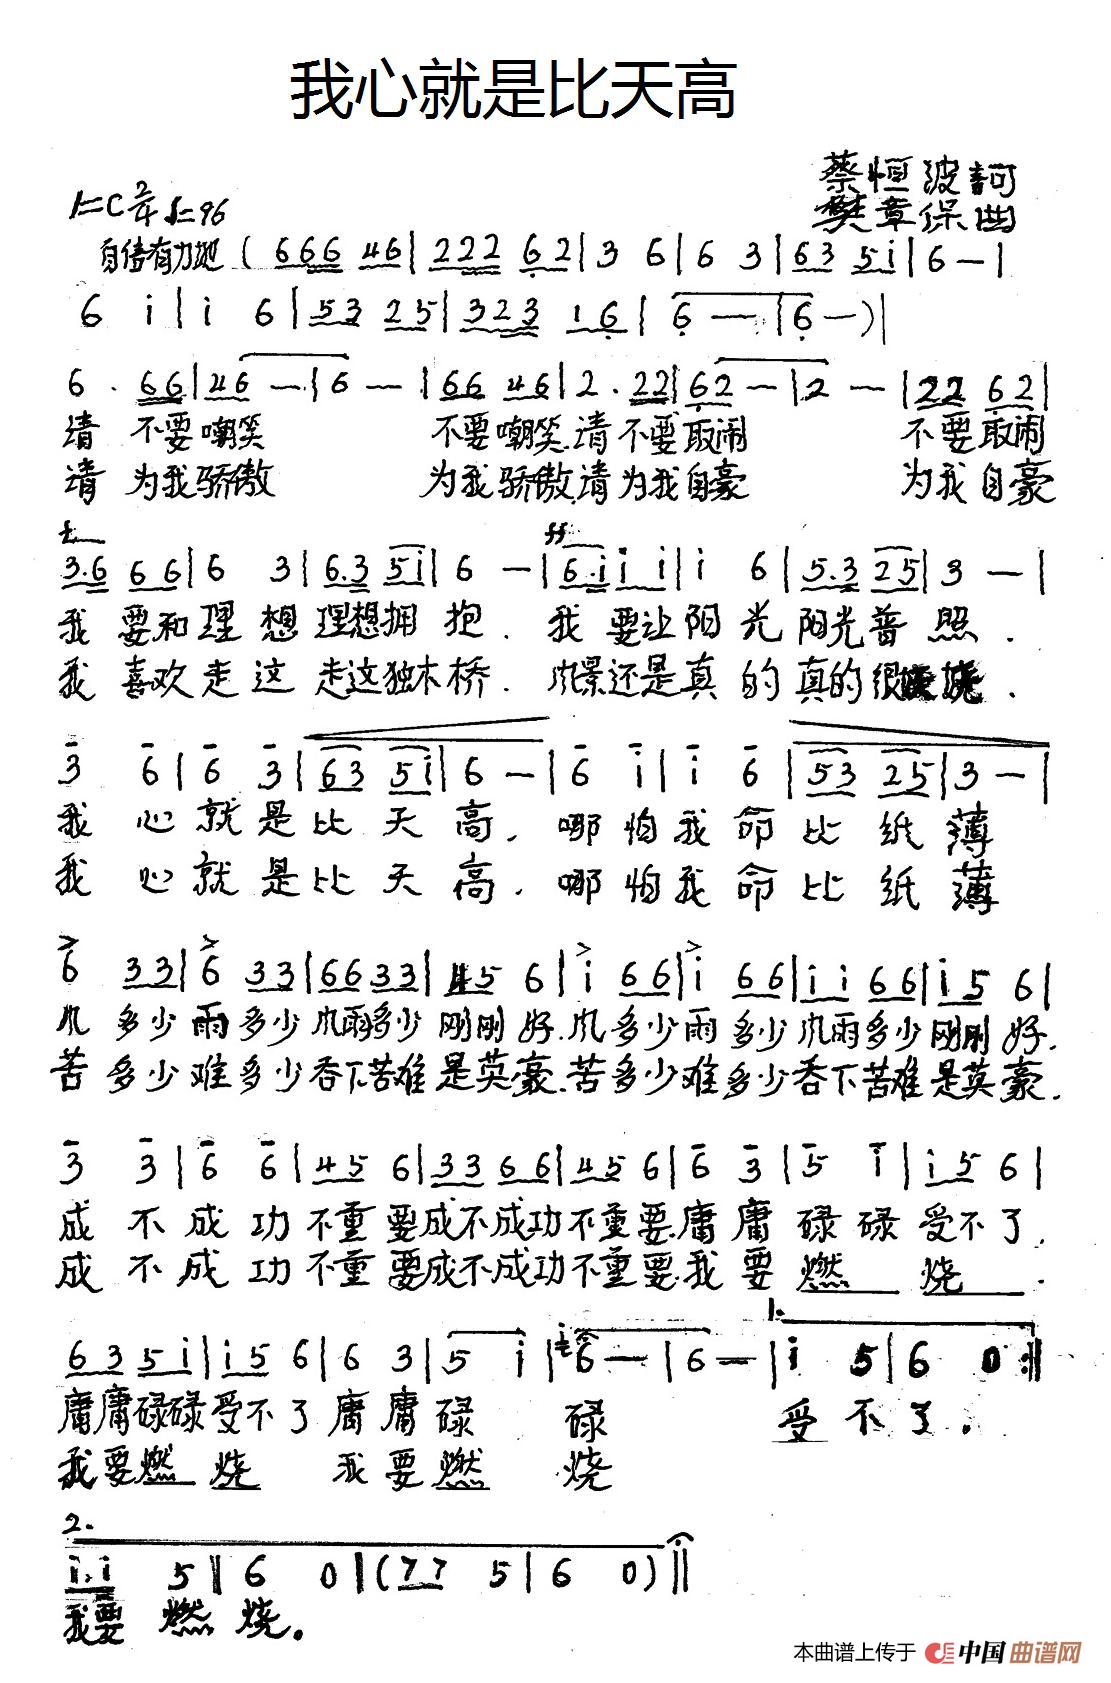 我心就是比天高
蔡恒波詞
樊章保曲
1=C 2/4 ♩=96
自信有力地 ( 6 6 6 4 6 | 2 2 2 6 2 | 3 6 | 6 3 | 6 3 5 i | 6 — |
6 i | i 6 | 5 3 2 5 | 3 2 3 1 6 | 6 — | 6 — ) |
6 . 6 6 | 4 6 — | 6 — | 6 6 4 6 | 2 . 2 2 | 6 2 — | 2 — | 2 2 6 2 |
请 不要嘲笑 不要嘲笑.请不要取闹 不要取闹
请 为我骄傲 为我骄傲.请为我自豪 为我自豪
f ff
3.6 6 6 | 6 3 | 6.3 5 i | 6 — | 6.i i i | i 6 | 5.3 2 5 | 3 — |
我 要和理 想 理想拥 抱. 我 要让阳 光 阳光普 照.
我 喜欢走 这 走这独木桥. 风景还是真 的 真的很
3 6 | 6 3 | 6 3 5 i | 6 — | 6 i | i 6 | 5 3 2 5 | 3 — |
我 心 就 是 比 天 高. 哪 怕 我 命 比 纸 薄
我 心 就 是 比 天 高. 哪 怕 我 命 比 纸 薄
6 3 3 | 6 3 3 | 6 6 3 3 | 4 5 6 | i 6 6 | i 6 6 | i i 6 6 | i 5 6 |
风 多少 雨 多少 风雨多少 刚刚 好.风 多少 雨 多少 风雨多少 刚刚 好.
苦 多少难 多少吞下苦难 是英豪.苦多少难多少吞下苦难是英豪.
3 3 | 6 6 | 4 5 6 | 3 3 6 6 | 4 5 6 | 6 3 | 5 i | i 5 6 |
成 不 成 功 不重 要成不成功不重要.庸 庸 碌 碌 受不了.
成 不 成 功 不重 要成不成功不重要.我 要 燃 烧.
6 3 5 i | i 5 6 | 6 3 | 5 i | 6 — | 6 — | 1. i 5 | 6 0 :||
庸庸碌碌 受不了 庸 庸 碌 碌 受 不 了.
我要燃 烧 我 要 燃 烧
2.
i.i 5 || 6 0 || ( 7 7 5 | 6 0 ) ||
我要 燃 烧.
本曲谱上传于 中国曲谱网